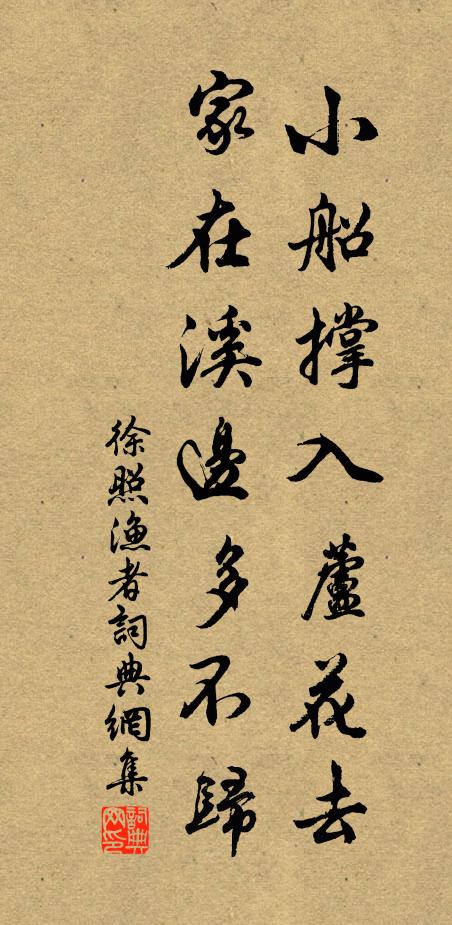 小船撐入蘆花去
家在溪邊多不歸
徐照漁者詞典網集
詞典網印